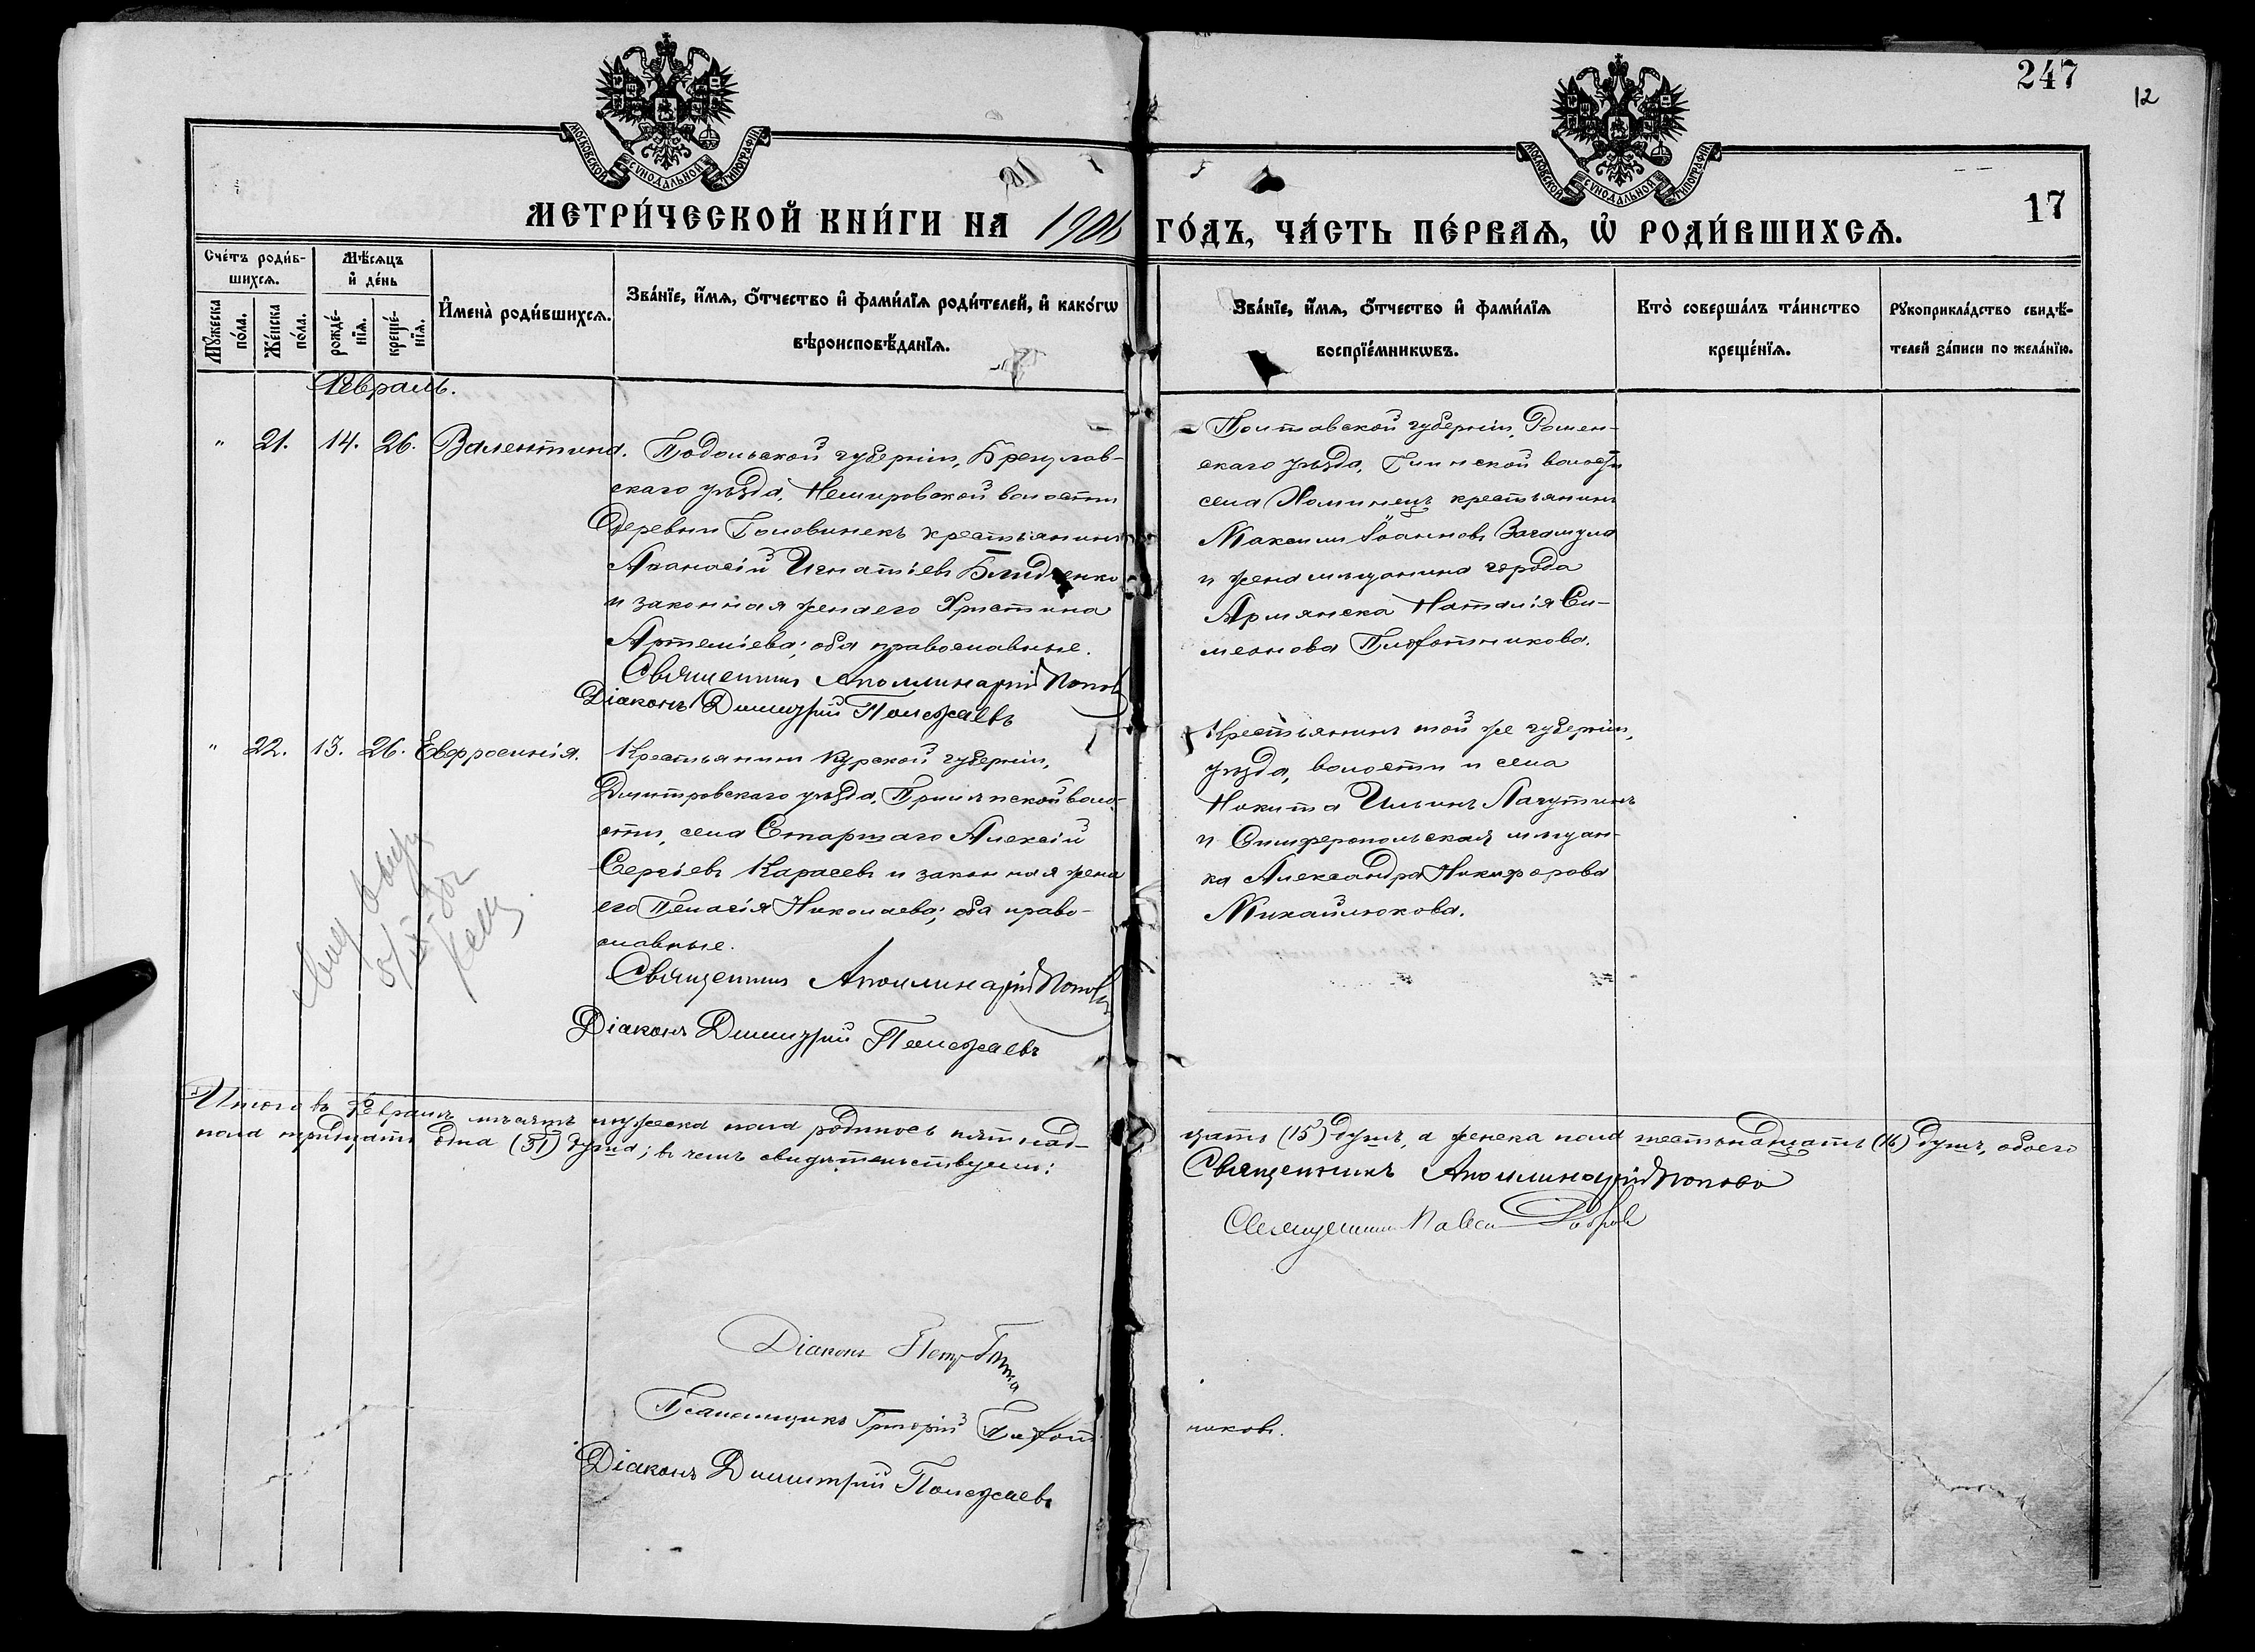 247
12
17
МОСКОВСКОЙ СѴНОДАЛЬНОЙ ТИПОГРАФІИ
МОСКОВСКОЙ СѴНОДАЛЬНОЙ ТИПОГРАФІИ
МЕТРИ́ЧЕСКОЙ КНИ́ГИ НА 1906 ГО́ДЪ, ЧА́СТЬ ПЕ́РВАѦ, Ѡ҆ РОДИ́ВШИХСѦ.
Сче́тъ роди́в-
шихсѧ.
Мѣ́сѧцъ
и҆ де́нь
Мꙋ́жеска
по́ла.
Же́нска
по́ла.
рожде́-
нїѧ.
креще́-
нїѧ.
И҆мена̀ роди́вшихсѧ.
Зва́нїе, и҆́мѧ, ѻ҆́тчество и҆ фами́лїѧ роди́телей, и҆ како́гѡ
вѣроисповѣ́данїѧ.
Зва́нїе, и҆́мѧ, ѻ҆́тчество и҆ фами́лїѧ
воспрїе́мникѡвъ.
Кто̀ соверша́лъ та́инство
креще́нїѧ.
Рꙋкоприкла́дство свидѣ́-
телей за́писи по жела́нїю.
Февраль.
" 21. 14. 26. Валентина.
Подольской губерніи, Брецлав-
скаго уѣзда, Немировской волости
деревни Головинекъ крестьянинъ
Аѳанасій Игнатіевъ
и законная жена его Христина
Артеміева; оба православные.
Священникъ Аполлинарій Поповъ
Діаконъ Димитрій Полежаевъ
Полтавской губерніи, Ромен-
скаго уѣзда, Глинской волости
села крестьянинъ
Максимъ Іоанновъ Загамула
и жена мѣщанина города
Армянска Наталія Си-
меонова Пиротникова.
" 22. 15. 26. Евфросинія.
Крестьянинъ Курской губерніи,
Дмитровскаго уѣзда, воло-
сти, села Старшаго Алексій
Сергіевъ Карасевъ и законная жена
его Пелагія Николаева; оба право-
славные.
Священникъ Аполлинарій Поповъ
Діаконъ Димитрій Полежаевъ
Крестьянинъ той же губерніи,
уѣзда, волости и села
Никита Ильинъ Лагутинъ
и Симферопольская мѣщан-
ка Александра Никифорова
Михайлюкова.
Итого въ Февралѣ мѣсяцѣ мужеска пола родилось пятнад-
цать (15) душъ, а женска пола шестьнадцать (16) душъ, обоего
пола тридцать одна (31) душа; въ чемъ свидѣтельствуемъ:
Священникъ Аполлинарій Поповъ
Священникъ Павелъ
Діаконъ Петръ
Псаломщикъ Григорій
никовъ.
Діаконъ Димитрій Полежаевъ